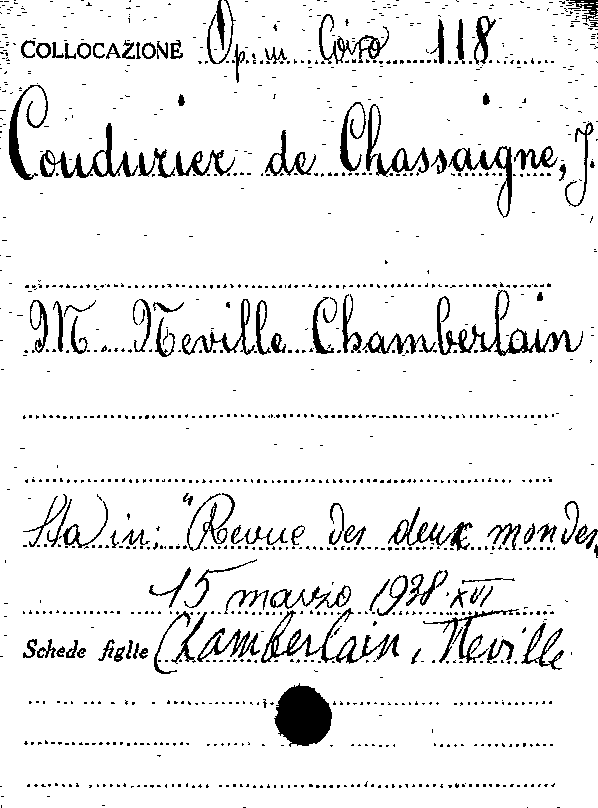 COLLOCAZIONE Op. in Corso 118
Coudurier de Chassaigne, J.
M. Neville Chamberlain
Sta in: "Revue des deux mondes,
15 marzo 1938·XVI
Schede figlie Chamberlain, Neville